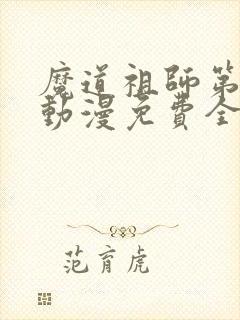 魔道祖師第
動漫免費全
范育虎